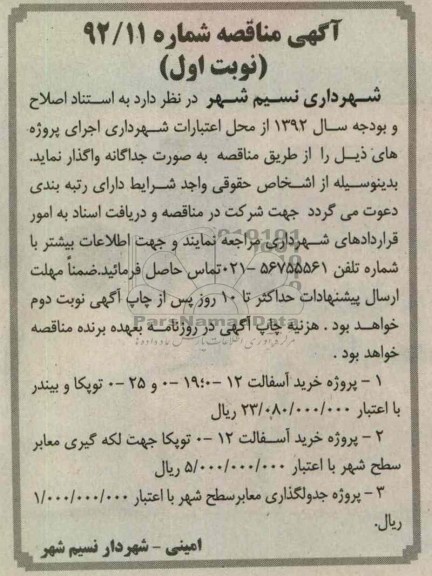 آگهی مناقصه شماره ۹۲/۱۱
(نوبت اول)
شهرداری نسیم شهر در نظر دارد به استناد اصلاح
و بودجه سال ۱۳۹۲ از محل اعتبارات شهرداری اجرای پروژه
های ذیل را از طریق مناقصه به صورت جداگانه واگذار نماید.
بدینوسیله از اشخاص حقوقی واجد شرایط دارای رتبه بندی
دعوت می گردد جهت شرکت در مناقصه و دریافت اسناد به امور
قراردادهای شهرداری مراجعه نمایند و جهت اطلاعات بیشتر با
شماره تلفن ۵۶۷۵۵۵۶۱ -۰۲۱تماس حاصل فرمائید.ضمناً مهلت
ارسال پیشنهادات حداکثر تا ۱۰ روز پس از چاپ آگهی نوبت دوم
خواهد بود . هزینه چاپ آگهی در روزنامه بعهده برنده مناقصه
خواهد بود .
۱ - پروژه خرید آسفالت ۱۲ -۰؛۱۹ -۰ و ۲۵ -۰ توپکا و بیندر
با اعتبار ۲۳/۰۸۰/۰۰۰/۰۰۰ ریال
۲ - پروژه خرید آسفالت ۱۲ -۰ توپکا جهت لکه گیری معابر
سطح شهر با اعتبار ۵/۰۰۰/۰۰۰/۰۰۰ ریال
۳ - پروژه جدولگذاری معابرسطح شهر با اعتبار ۱/۰۰۰/۰۰۰/۰۰۰
ریال.
امینی - شهردار نسیم شهر
ParsNamadData